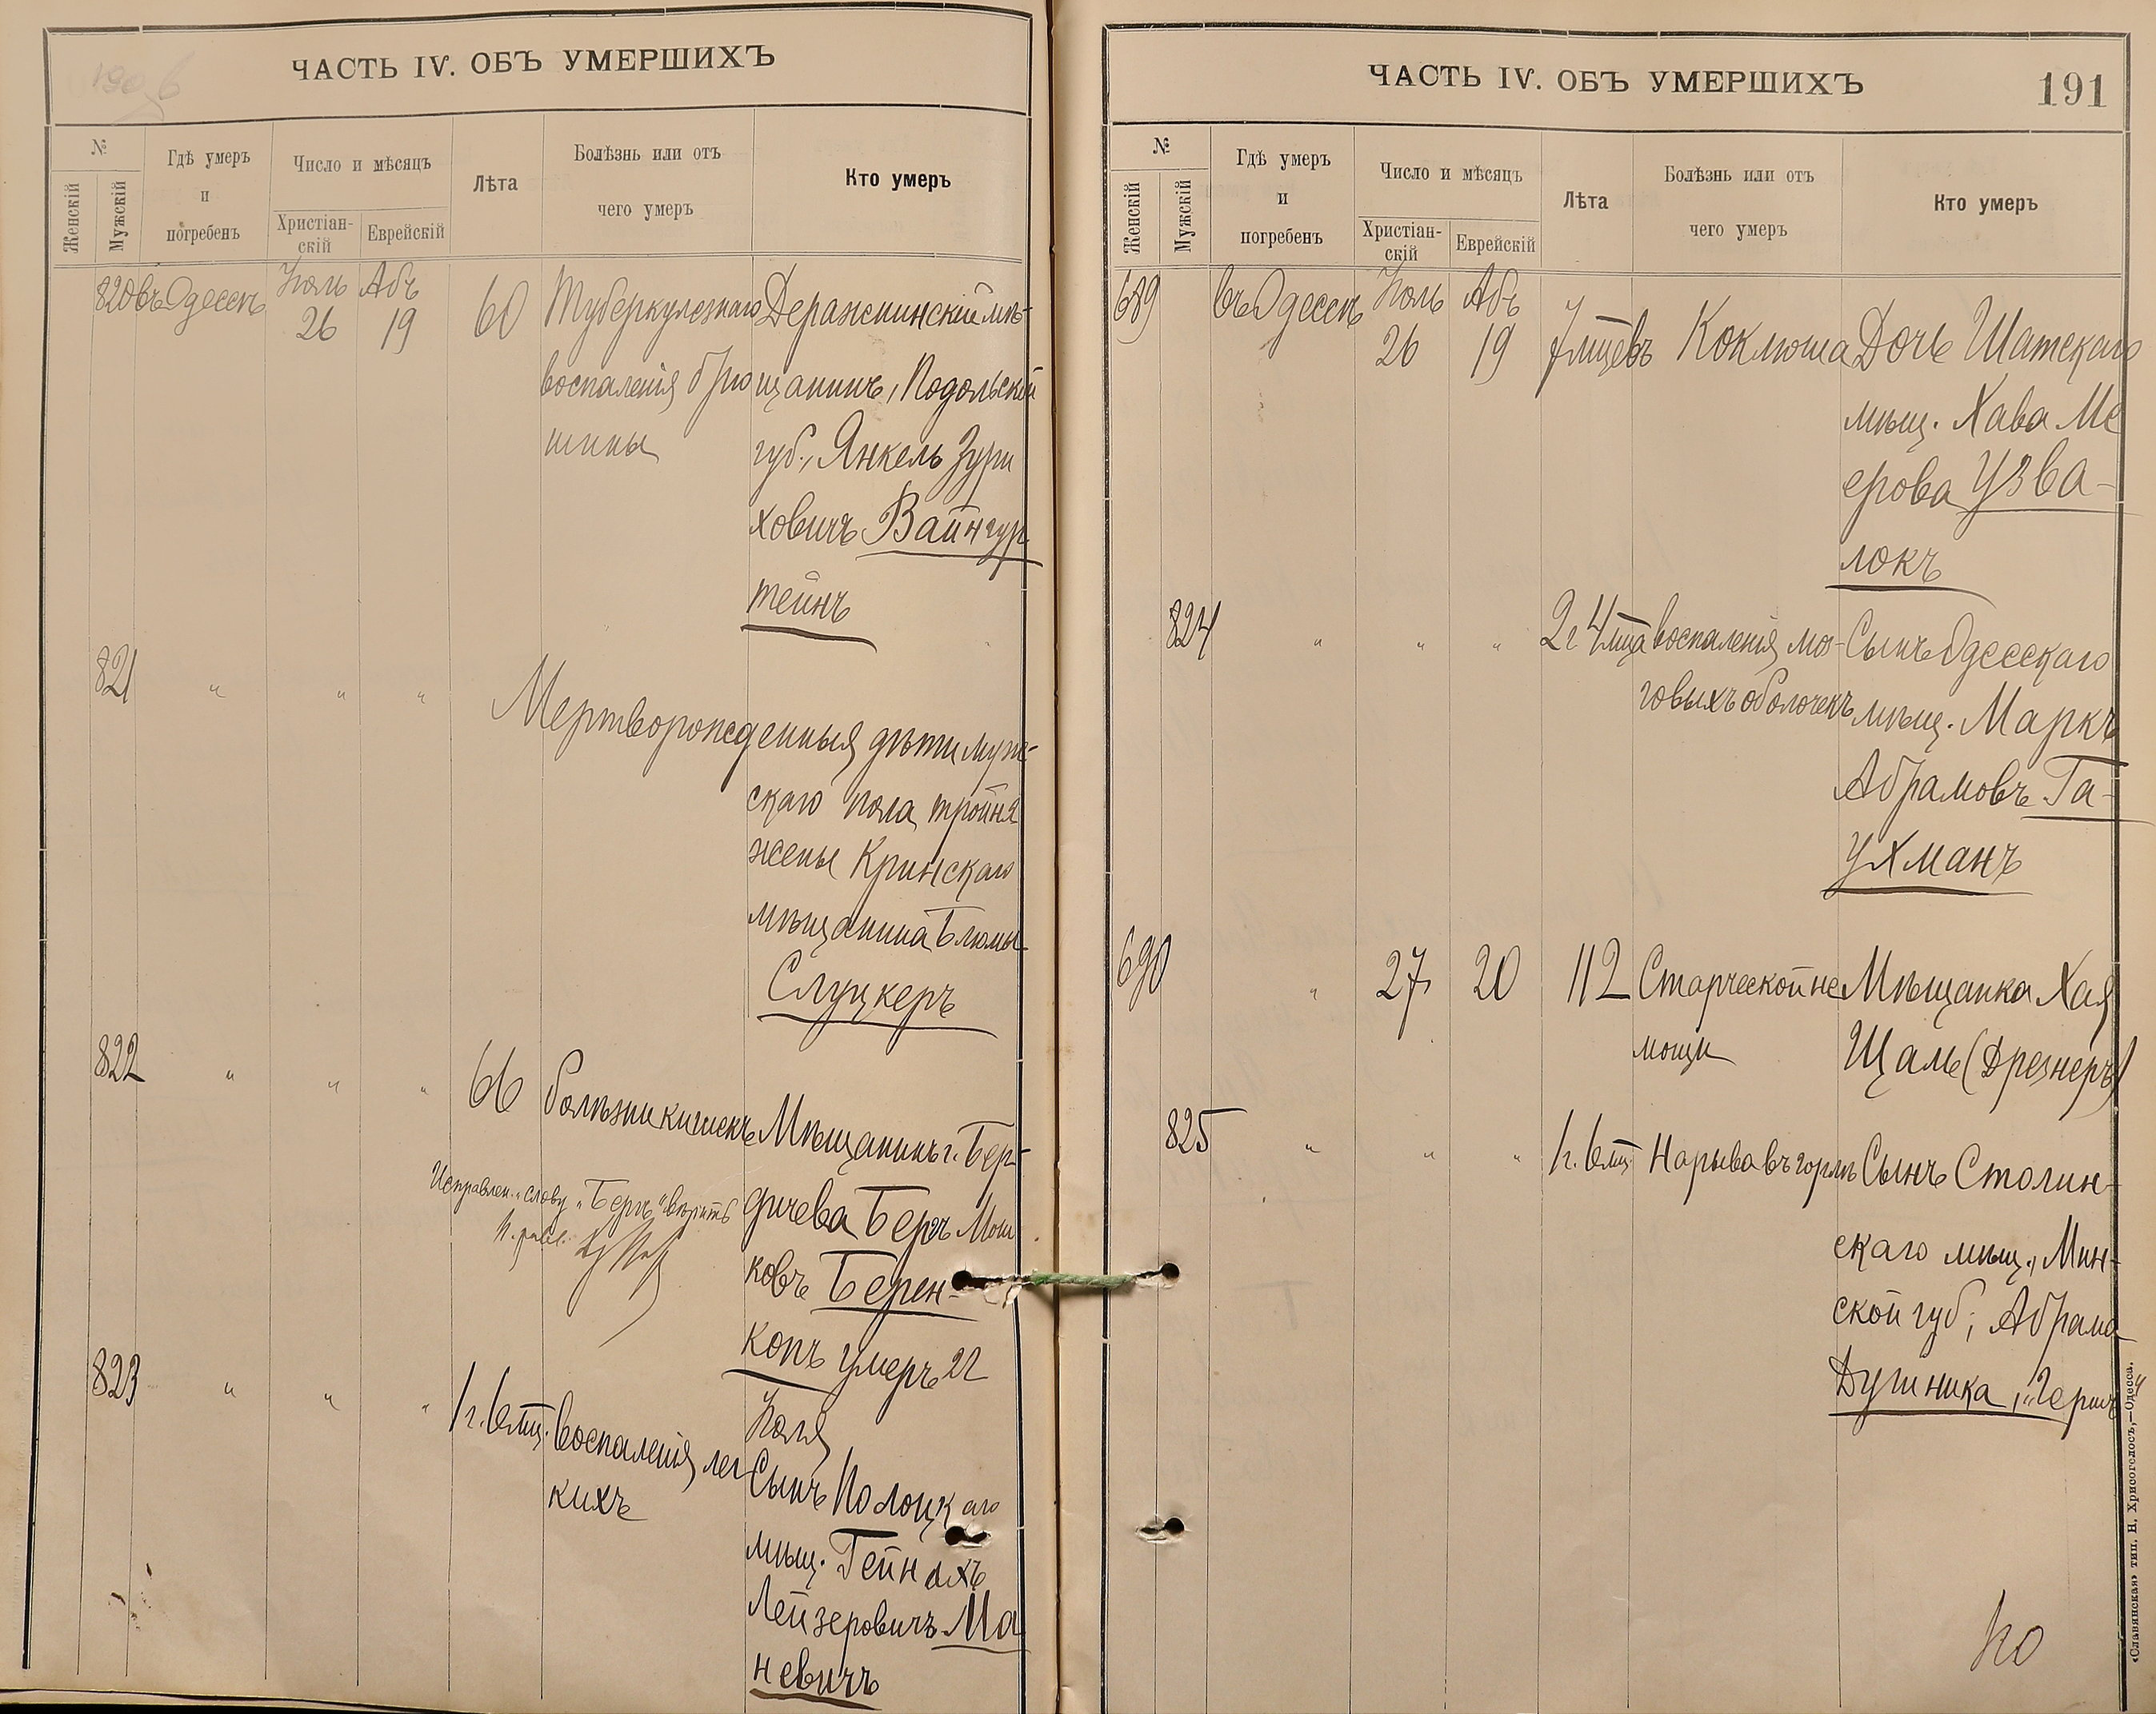 ЧАСТЬ IV. ОБЪ УМЕРШИХЪ
№
Женскій
Мужскій
Гдѣ умеръ
и
погребенъ
Число и мѣсяцъ
Христіан-
скій
Еврейскій
Лѣта
Болѣзнь или отъ
чего умеръ
Кто умеръ
820
въ Одессѣ
Іюль
26
Абъ
19
60
Туберкулезнаго
воспаленія брю
шины
Деражнинскій мѣ-
щанинъ, Подольской
губ., Янкель Зури
ховичъ Вайнгур
тейнъ
821
"
"
"
Мертворожденныя дѣти муж-
скаго пола, тройня
жены Кринскаго
мѣщанина Блюмы
Слуцкеръ
822
"
"
"
66
болѣзни кишекъ
Мѣщанинъ г. Бер-
дичева Беръ Мош
ковъ Берен-
копъ умеръ 22
Іюля
Исправлен. слову "Беръ" вѣрить
823
"
"
"
1 г. 6 мц.
воспаленія лег
кихъ
Сынъ Полоцкаго
мѣщ. Гейнахъ
Лейзеровичъ Ма
невичъ
ЧАСТЬ IV. ОБЪ УМЕРШИХЪ
191
№
Женскій
Мужскій
Гдѣ умеръ
и
погребенъ
Число и мѣсяцъ
Христіан-
скій
Еврейскій
Лѣта
Болѣзнь или отъ
чего умеръ
Кто умеръ
689
въ Одессѣ
Іюль
26
Абъ
19
7 мцевъ
Коклюша
Дочь Шатскаго
мѣщ. Хава Ме
ерова Узва-
локъ
824
"
"
"
2 г. 4 мца
воспаленія моз-
говыхъ оболочекъ
Сынъ Одесскаго
мѣщ. Маркъ
Абрамовъ Га-
ухманъ
690
"
27
20
112
Старческой не
мощи
Мѣщанка Хая
Щаль (Дрезнеръ)
825
"
"
"
1 г. 6 мц.
Нарыва въ горлѣ
Сынъ Столин-
скаго мѣщ., Мин-
ской губ., Абрама
Душника, "Гершъ"
«Славянская» тип. Н. Хрисогелосъ,—Одесса.